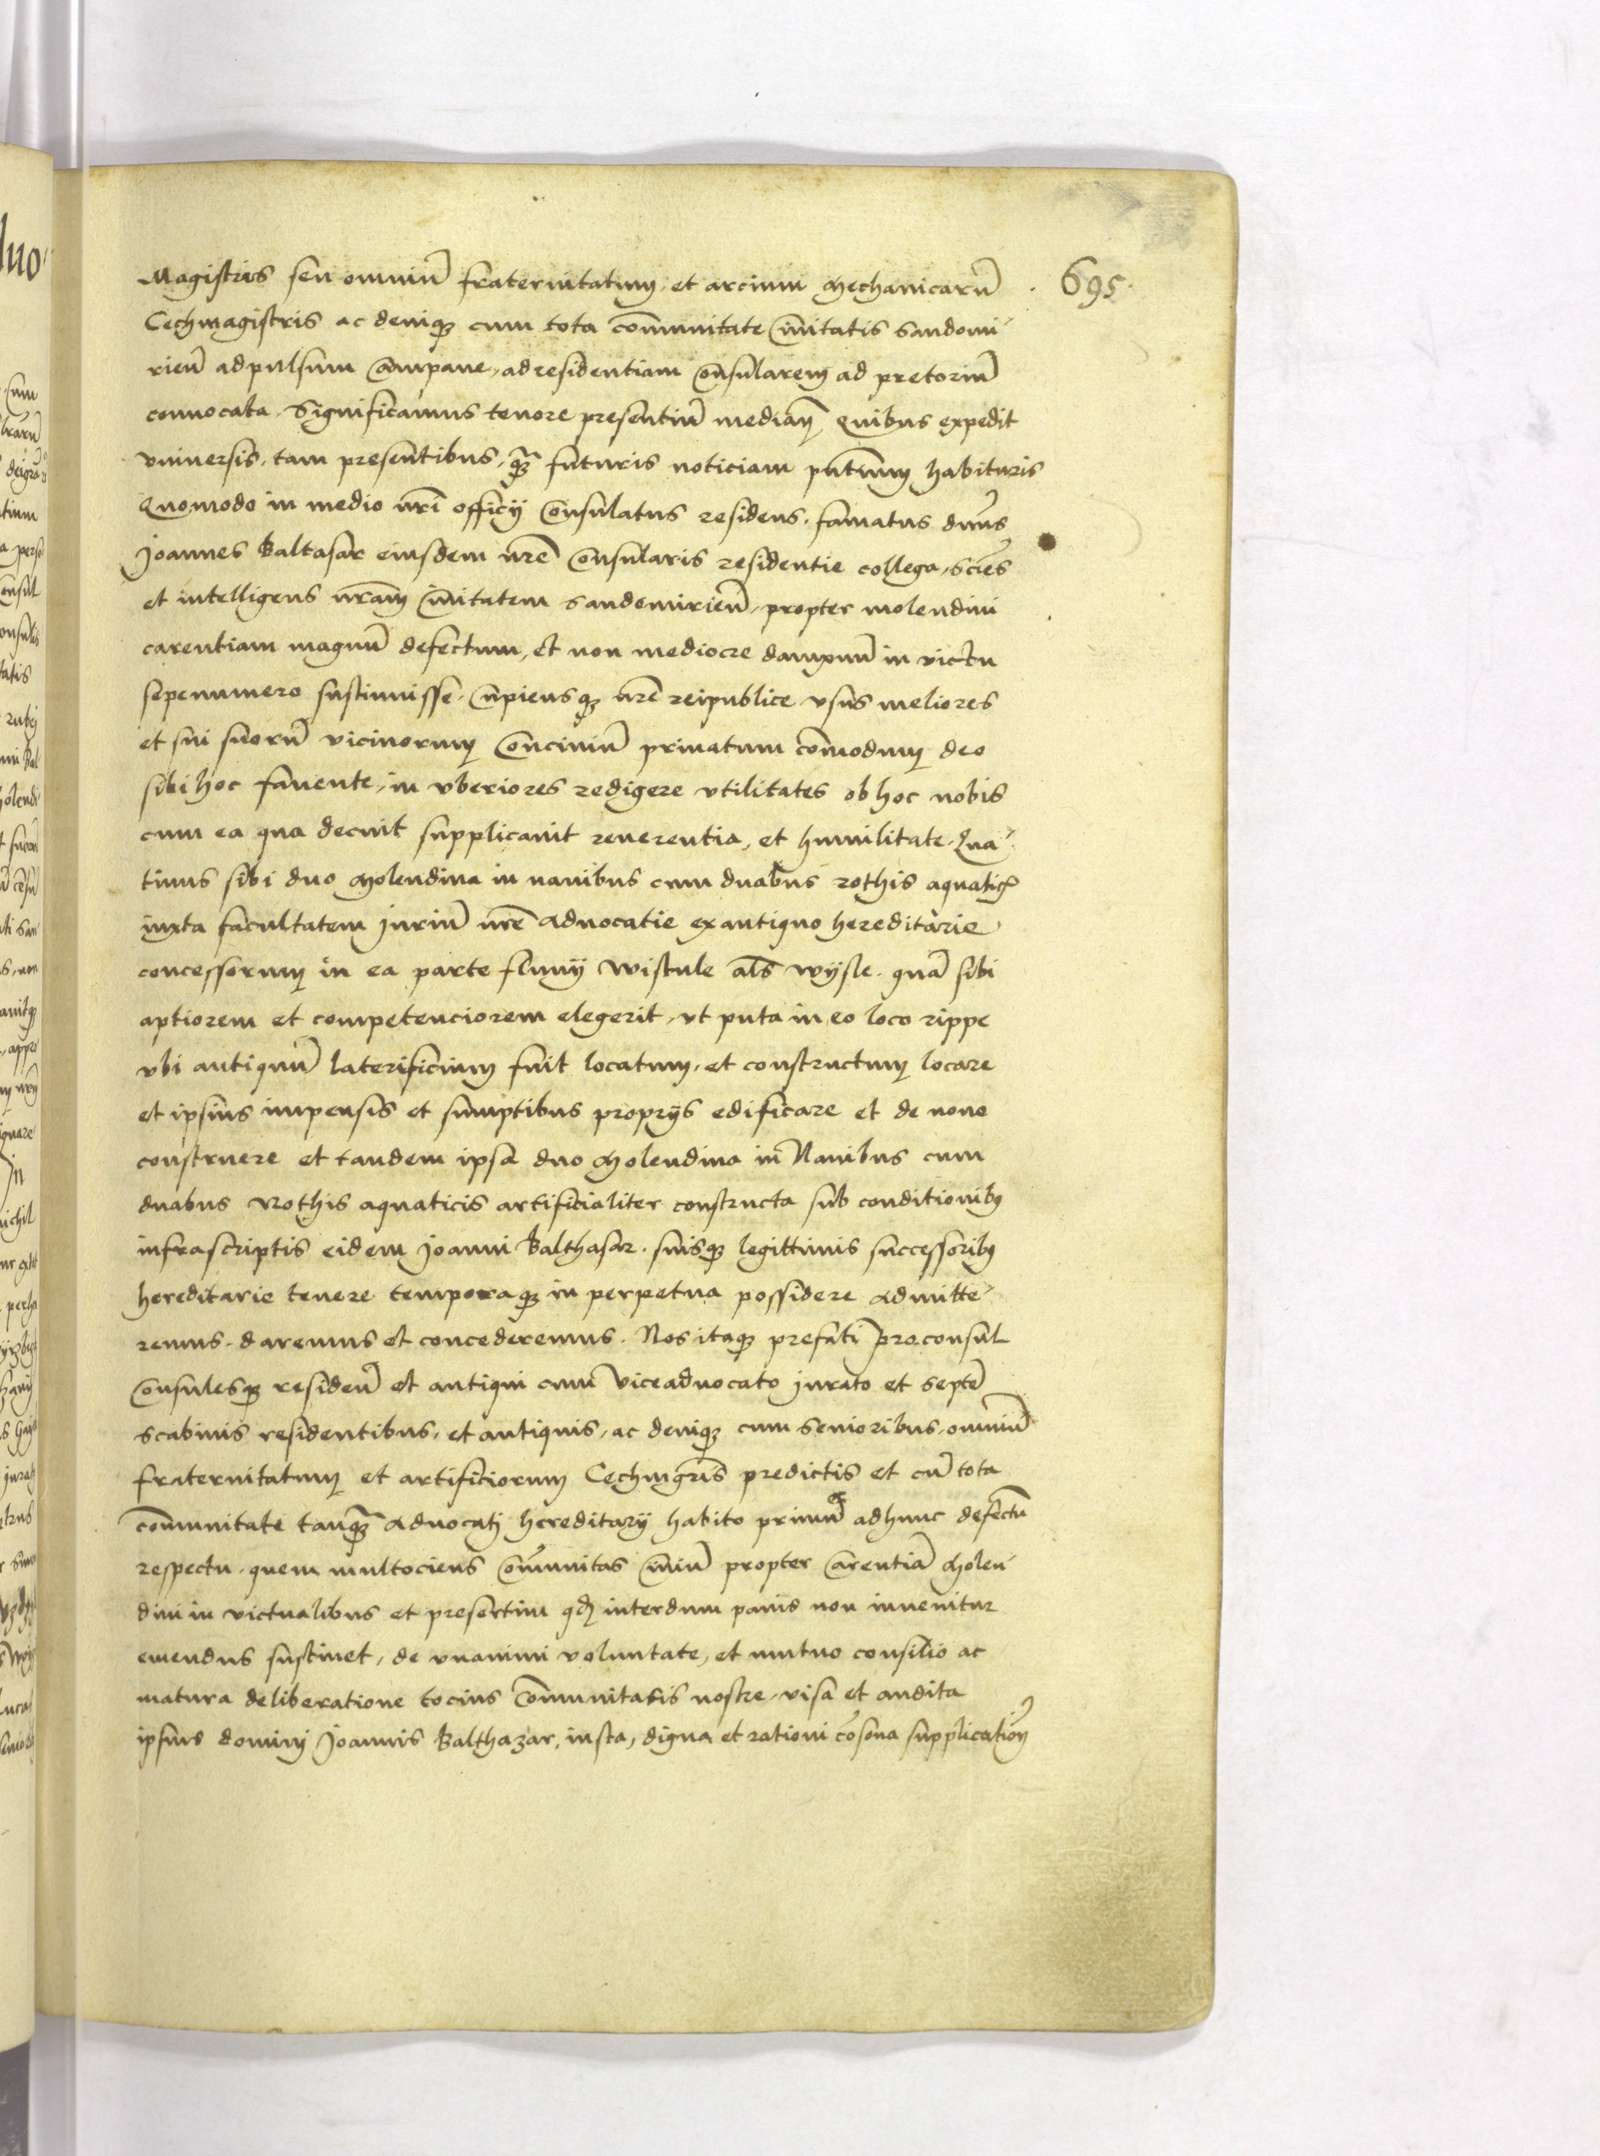 Magistris seu omniu̅ fraternitatum, et arcium Mechanicaru̅ · 695 ·
Cechmagistris ac deniqz cum tota co̅munitate Ciuitatis Sandomi
rien̅ ad pulsum Campane, ad residentiam Consularem ad pretoriu̅
conuocata. Significamus tenore presentiu̅ median̅ Quibus expedit
vniuersis, tam presentibus, qz̅ futuris noticiam pn̅tium habituris
Quomodo in medio nr̅i officij Consulatus residens, famatus dn̅us
Joannes Baltasar eiusdem nr̅e Consularis residentie collega, scie̅s
et intelligens nr̅am Ciuitatem Sandomirien̅, propter molendini
carentiam magnu̅ defectum, et non mediocre dampnu̅ in victu
sepenumero sustinuisse, Cupiensqz nr̅e reipublice vsus meliores
et sui suoru̅ vicinorum Conciuiu̅ priuatum co̅modum deo
sibi hoc fauente, in vberiores redigere vtilitates ob hoc nobis
cum ea qua decuit supplicauit reuerentia, et humilitate. Qua
tinus sibi duo Molendina in nauibus cum duabus rothis aquatic̅
iuxta facultatem juriu̅ nr̅e aduocatie ex antiquo hereditarie
concessorum in ea parte fluuij Wistule al̅s wysle. qua̅ sibi
aptiorem et competenciorem elegerit, vt puta in eo loco rippe
vbi antiquu̅ laterificium fuit locatum, et constructum locare
et ipsius impensis et sumptibus proprijs edificare et de nouo
construere et tandem ipsa duo Molendina in Nauibus cum
duabus Rothis aquaticis artificialiter constructa sub conditionibꝯ
infrascriptis eidem Joanni Balthasar. suisqz legittimis successoribꝯ
hereditarie tenere temporaqz in perpetua possidere admitte
remus. daremus et concederemus. Nos itaqz prefati proconsul
Consulesqz residen̅ et antiqui cum Viceaduocato jurato et septe̅
scabinis residentibus, et antiquis, ac deniqz cum senioribus omniu̅
fraternitatum et artificiorum Cechmgr̅is predictis et cu̅ tota
co̅munitate tanqz̅ aduocati hereditarij habito primu̅ ad hunc defectu̅
respectu. quem multociens Co̅munitas Ciuiu̅ propter Carentia̅ Molen
dini in victualibus et presertim qd̅ interdum panis non inuenitur
emendus sustinet, de vnanimi voluntate, et mutuo consilio ac
matura deliberatione tocius Co̅munitatis nostre, visa et audita
ipsius domini Joannis Balthazar, iusta, digna et rationi co̅sona supplication̅